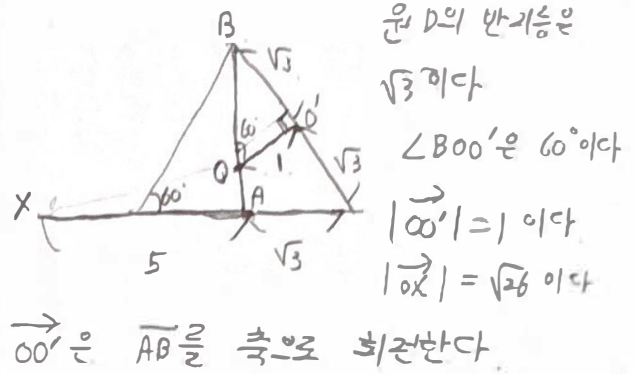 B
√3
60°
O'
O
1
√3
60°
X
A
5
√3
원 D의 반지름은
√3 이다
∠BOO'은 60°이다
|OO'| = 1 이다
|OX| = √26 이다
OO'은 AB를 축으로 회전한다